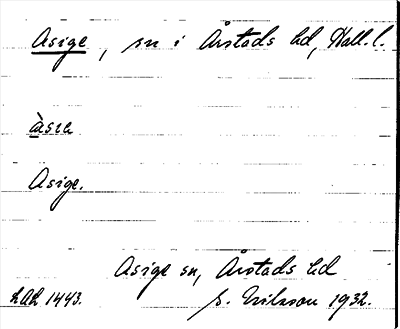 Asige, sn i Årstads hd, Hall. l.
àsɩa
Asige.
Asige sn, Årstads hd
LAL 1443. S. Eriksson 1932.